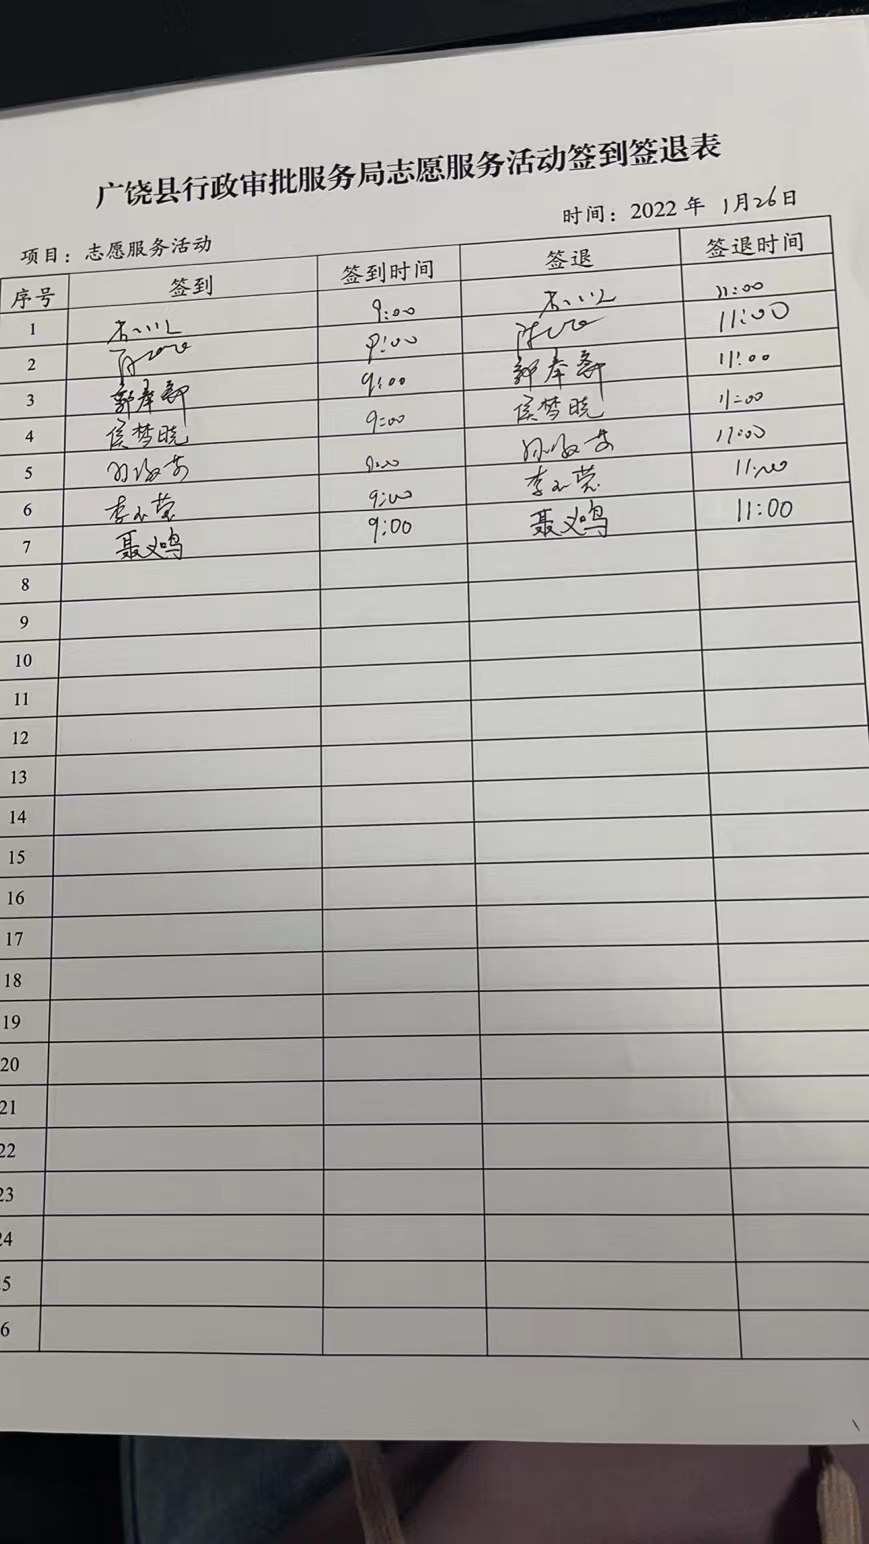 广饶县行政审批服务局志愿服务活动签到签退表
项目：志愿服务活动 时间：2022 年 1月26日
序号 签到 签到时间 签退 签退时间
1 9:00 11:00
2 9:00 11:00
3 郭奉新 9:00 郭奉新 11:00
4 侯梦晓 9:00 侯梦晓 11:00
5 9:00 11:00
6 李 莹 9:00 李 莹 11:00
7 聂义鸣 9:00 聂义鸣 11:00
8
9
10
11
12
13
14
15
16
17
18
19
20
21
22
23
24
5
6